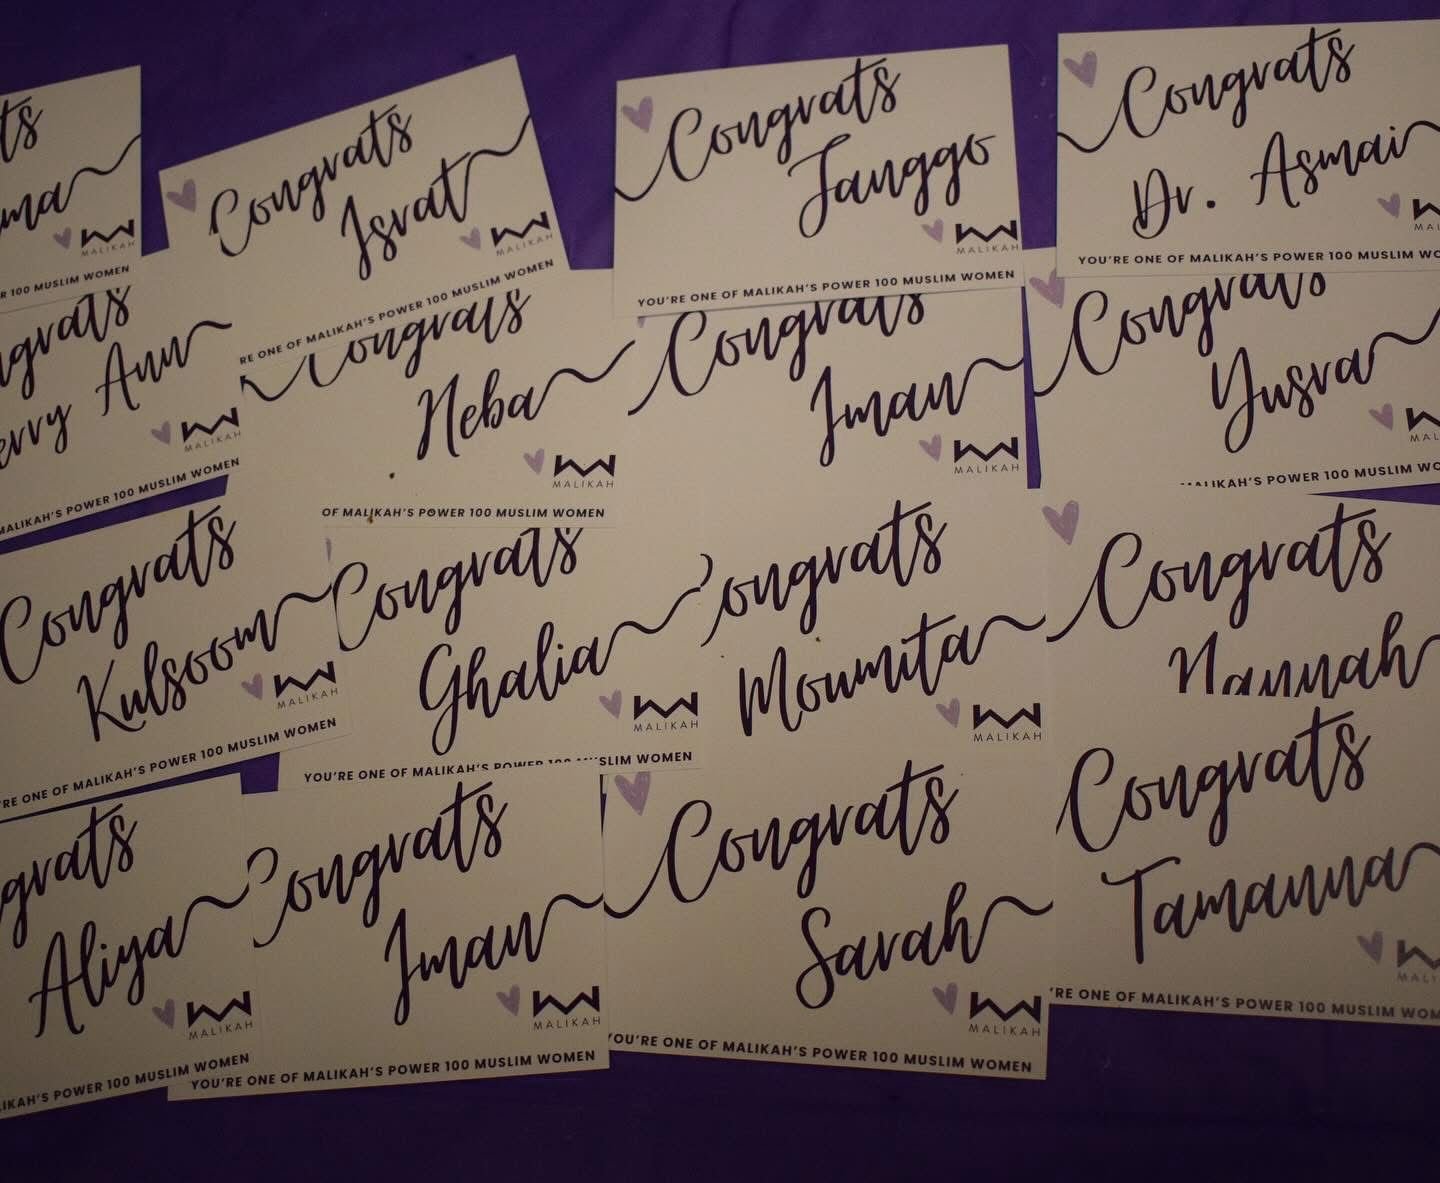 Congrats
Israt
MALIKAH
RE ONE OF MALIKAH'S POWER 100 MUSLIM WOMEN
Congrats
Janggo
MALIKAH
YOU'RE ONE OF MALIKAH'S POWER 100 MUSLIM WOMEN
Congrats
Dr. Asmai
YOU'RE ONE OF MALIKAH'S POWER 100 MUSLIM WO
ts
ma
MALIKAH
R 100 MUSLIM WOMEN
ngrats
erry Ann
MALIKAH
MALIKAH'S POWER 100 MUSLIM WOMEN
Congrats
Heba
MALIKAH
OF MALIKAH'S POWER 100 MUSLIM WOMEN
Congrats
Iman
MALIKAH
Congrats
Yusra
MA
MALIKAH'S POWER 100 MUSLIM WO
Congrats
Kulsoom
MALIKAH
'RE ONE OF MALIKAH'S POWER 100 MUSLIM WOMEN
Congrats
Ghalia
MALIKAH
YOU'RE ONE OF MALIKAH'S POWER 100 MUSLIM WOMEN
Congrats
Moumita
MALIKAH
Congrats
Hannah
ngrats
Aliya
MALIKAH
IKAH'S POWER 100 MUSLIM WOMEN
Congrats
Iman
MALIKAH
YOU'RE ONE OF MALIKAH'S POWER 100 MUSLIM WOMEN
Congrats
Sarah
MALIKAH
YOU'RE ONE OF MALIKAH'S POWER 100 MUSLIM WOMEN
Congrats
Tamanna
MALI
'RE ONE OF MALIKAH'S POWER 100 MUSLIM WOM